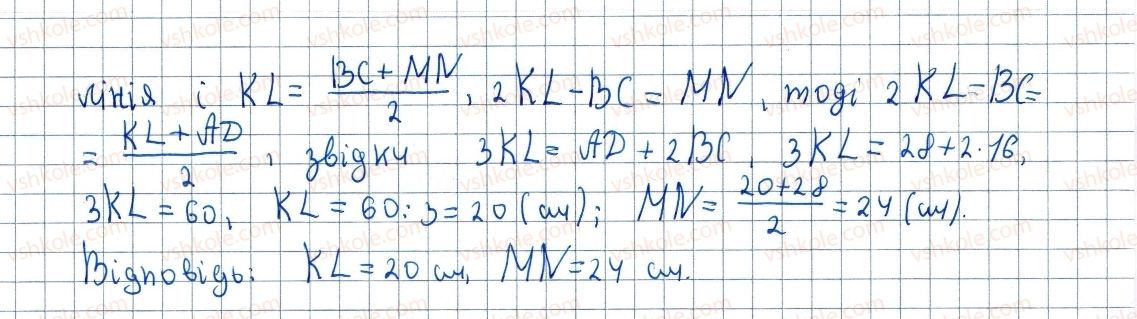 лінія і KL = (BC + MN)/2, 2KL - BC = MN, тоді 2KL = BC =
= (KL + AD)/2, звідки 3KL = AD + 2BC, 3KL = 28 + 2·16,
3KL = 60, KL = 60 : 3 = 20 (см); MN = (20 + 28)/2 = 24 (см).
Відповідь: KL = 20 см, MN = 24 см.